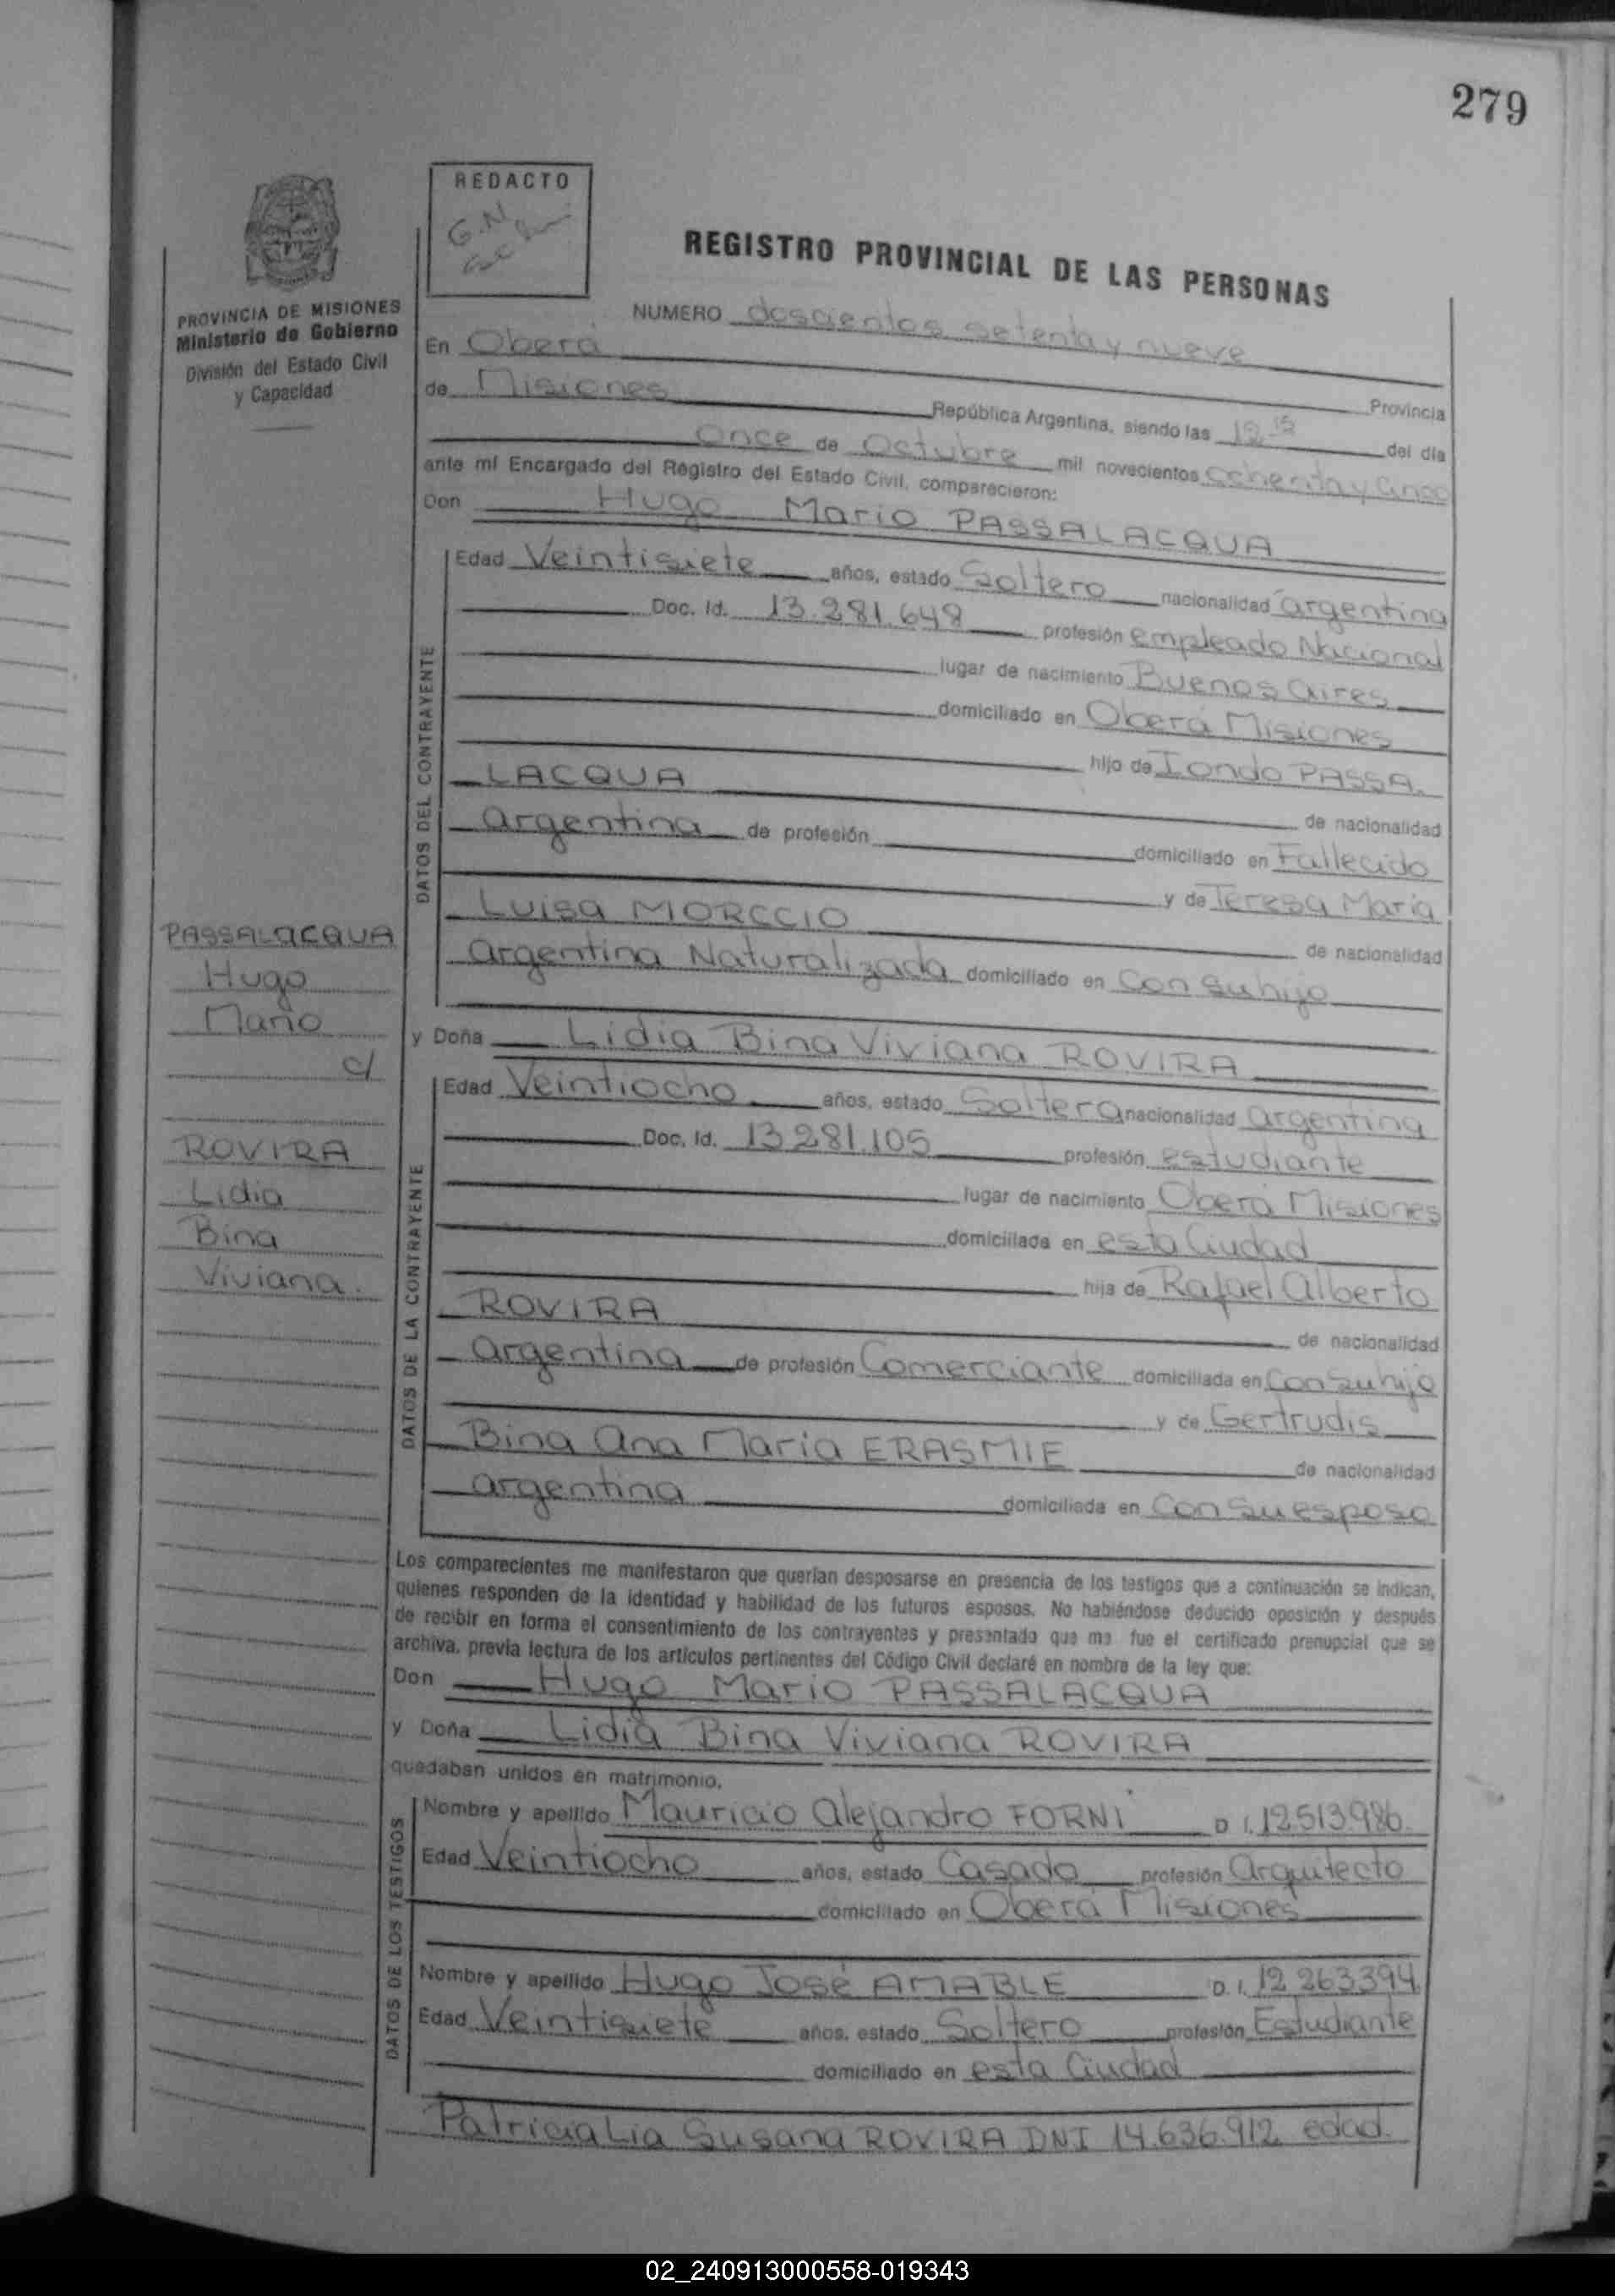 279
REDACTO
G.N
REGISTRO PROVINCIAL DE LAS PERSONAS
PROVINCIA DE MISIONES
Ministerio de Gobierno
División del Estado Civil
y Capacidad
NUMERO doscientos setenta y nueve
En Oberá Provincia
de Misiones República Argentina, siendo las 12 15 del día
once de Octubre mil novecientos ochenta y cinco
ante mí Encargado del Registro del Estado Civil, comparecieron:
Don Hugo Mario PASSALACQUA
DATOS DEL CONTRAYENTE
Edad Veintisiete años, estado Soltero nacionalidad argentina
Doc. Id. 13.281.648 profesión empleado Nacional
lugar de nacimiento Buenos Aires
domiciliado en Oberá Misiones
hijo de Iondo PASSA.
LACQUA de nacionalidad
argentina de profesión domiciliado en Fallecido
y de Teresa María
Luisa MORCCIO de nacionalidad
argentina Naturalizada domiciliado en con su hijo
PASSALACQUA
Hugo
Mario
c/
ROVIRA
Lidia
Bina
Viviana.
y Doña Lidia Bina Viviana ROVIRA
DATOS DE LA CONTRAYENTE
Edad Veintiocho años, estado Soltera nacionalidad argentina
Doc. Id. 13.281.105 profesión estudiante
lugar de nacimiento Oberá Misiones
domiciliada en esta Ciudad
hija de Rafael Alberto
ROVIRA de nacionalidad
argentina de profesión Comerciante domiciliada en con su hija
y de Gertrudis
Bina Ana María ERASMIE de nacionalidad
argentina domiciliada en con su esposo
Los comparecientes me manifestaron que querían desposarse en presencia de los testigos que a continuación se indican,
quienes responden de la identidad y habilidad de los futuros esposos. No habiéndose deducido oposición y después
de recibir en forma el consentimiento de los contrayentes y presentado que me fue el certificado prenupcial que se
archiva, previa lectura de los artículos pertinentes del Código Civil declaré en nombre de la ley que:
Don Hugo Mario PASSALACQUA
y Doña Lidia Bina Viviana ROVIRA
quedaban unidos en matrimonio.
DATOS DE LOS TESTIGOS
Nombre y apellido Mauricio Alejandro FORNI D I. 12.513.986.
Edad Veintiocho años, estado Casado profesión Arquitecto
domiciliado en Oberá Misiones
Nombre y apellido Hugo José AMABLE D. I. 12.263.394
Edad Veintisiete años, estado Soltero profesión Estudiante
domiciliado en esta Ciudad
Patricia Lia Susana ROVIRA DNI 14.636.912 edad
02_240913000558-019343